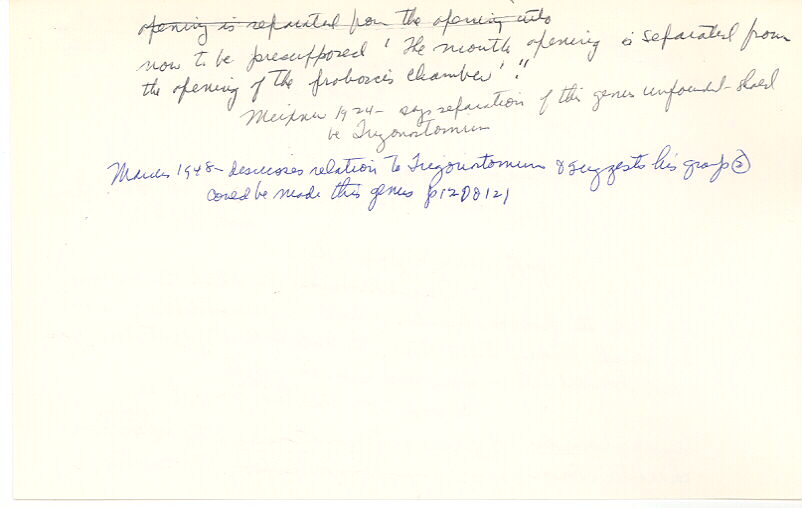 opening is separated from the opening into
now to be presupposed 'The mouth opening is separated from
the opening of the proboscis chamber'."
Meixner 1924 - says separation of this genus unfounded - should
be Trigonostomum
Marcus 1948 - discusses relation to Trigonostomum & suggests his group ②
could be made this genus p120&121